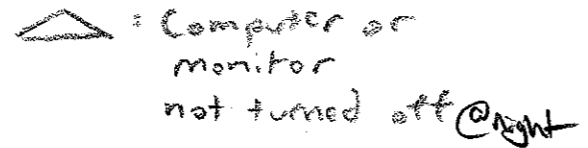 : Computer or
monitor
not turned off @night